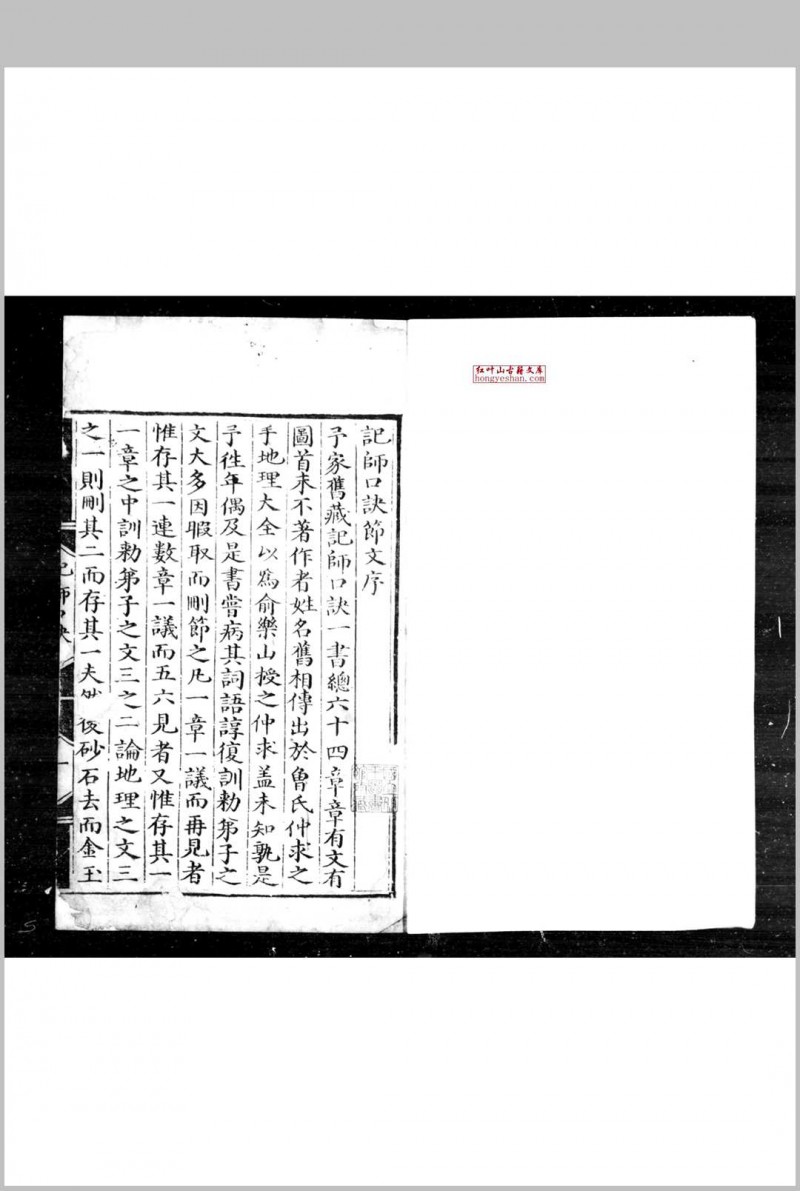 記師口訣節文序
予家舊藏記師口訣一書總六十四章章有文有
圖首末不著作者姓名舊相傳出於魯氏仲求之
手地理大全以爲俞樂山授之仲求盖未知孰是
予徃年偶及是書嘗病其詞語諄復訓勑苐子之
文大多因暇取而刪節之凡一章一議而再見者
惟存其一連數章一議而五六見者又惟存其一
一章之中訓勑苐子之文三之二論地理之文三
之一則刪其二而存其一夫然後砂石去而金玉
記師口訣
红叶山古籍文库
hongyeshan.com